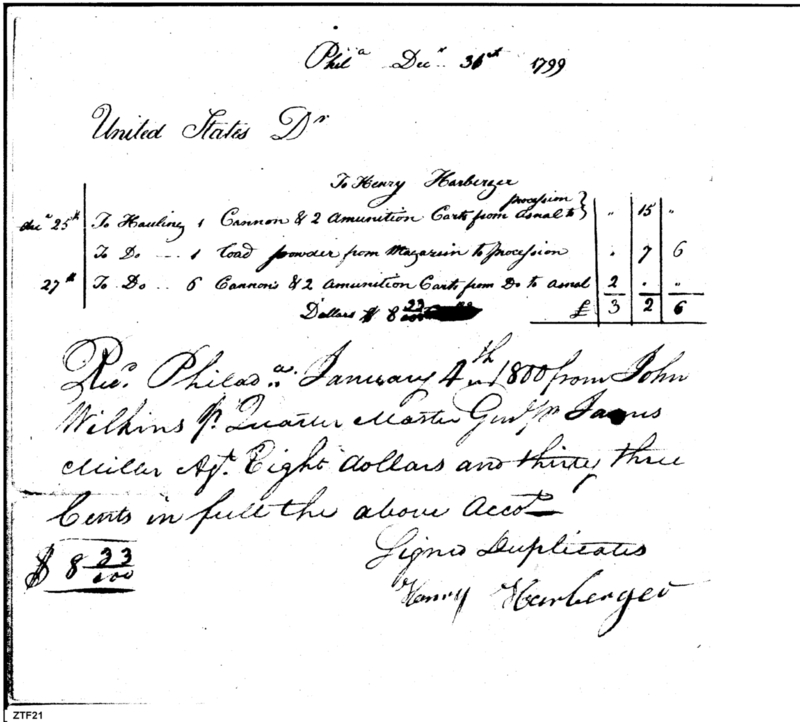 Phila Decr 31st 1799
United States Dr
To Henry Harberger
procession
decr 25th To Hauling 1 Cannon & 2 Amunition Carts from Asnal to } " 15 "
To Do ... 1 load powder from Magazin to procession " 7 6
27th To Do .. 6 Cannons & 2 Amunition Carts from Do to Asnal 2 " "
Dollars $ 8 33/100 £ 3 2 6
Recd Philada. January 4th 1800 from John
Wilkins Jr. Quarter Master Genl pr James
Miller Agt. Eight dollars and thirty three
Cents in full the above Accot
Signed Duplicates
$ 8 33/100
Henry Harberger
ZTF21